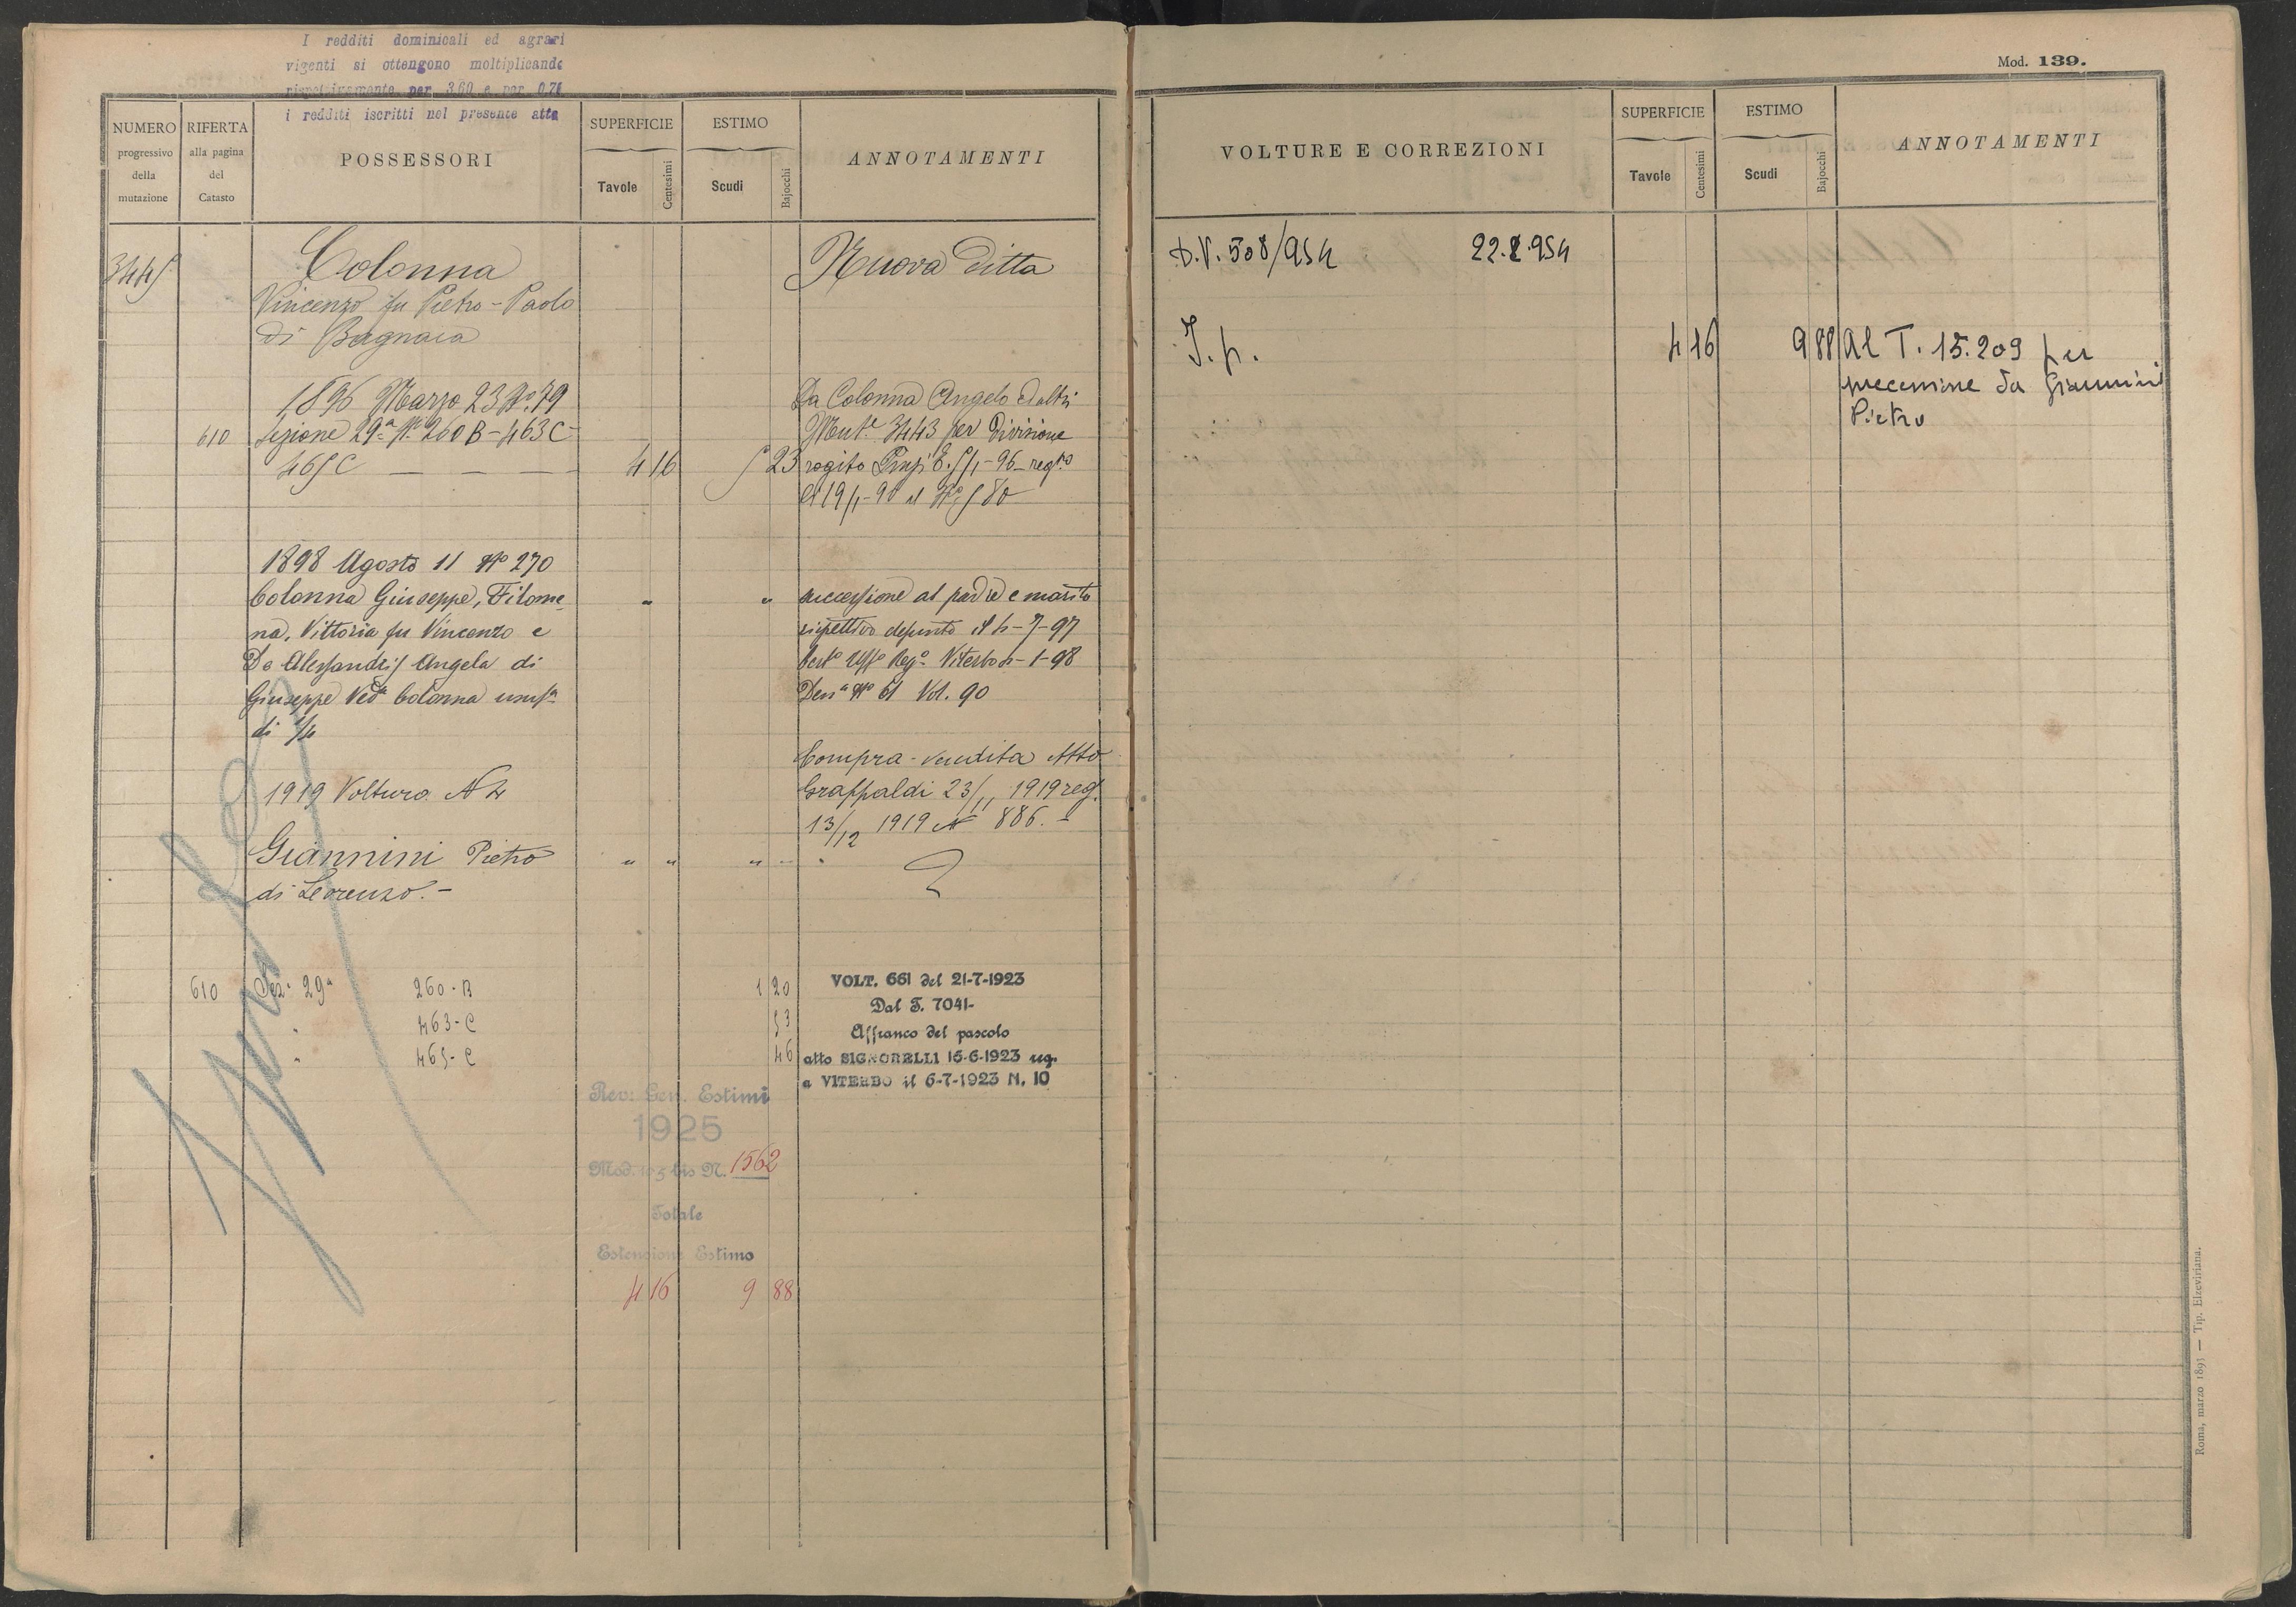 I redditi dominicali ed agrari
vigenti si ottengono moltiplicando
rispettivamente per 3,60 e per 0,76
i redditi iscritti nel presente atto
NUMERO progressivo della mutazione
RIFERTA alla pagina del Catasto
POSSESSORI
SUPERFICIE
Tavole Centesimi
ESTIMO
Scudi Bajocchi
ANNOTAMENTI
3445 Colonna Nuova Ditta
Vincenzo fu Pietro-Paolo
di Bagnaia
1896 Marzo 23 N° 79 Da Colonna Angelo ed altri
610 Sezione 29ª N° 260 B - 463 C Mut.e 3443 per Divisione
465 C 4 16 5 23 rogito 5/1-96 reg.to
il 19/1-96 al N° 580
1898 Agosto 11 N° 270
Colonna Giuseppe, Filome- " " successione al padre e marito
na, Vittoria fu Vincenzo e rispettivo defunto il 4-7-97
De Alessandris Angela di Cert° Uff° Reg° Viterbo 4-1-98
Giuseppe Ved.a Colonna usuf.a Den.a N° 61 Vol. 90
di 1/4
Compra-vendita Atto
1919 Voltura N 4 Grappaldi 23/11 1919 reg.
13/12 1919 N 886. -
Giannini Pietro " " " "
di Lorenzo. -
610 Sez.e 29ª 260-B 1 20
" 463-C 53
" 465-C 46
VOLT. 661 del 21-7-1923
Dal T. 7041-
Affranco del pascolo
atto SIGNORELLI 16-6-1923 reg.
a VITERBO il 6-7-1923 N. 10
Rev: Gen. Estimi
1925
Mod. 105 bis N. 1562
Totale
Estensione Estimo
4 16 9 88
Mod. 139.
VOLTURE E CORREZIONI
SUPERFICIE
Tavole Centesimi
ESTIMO
Scudi Bajocchi
ANNOTAMENTI
D.V. 508/954 22.2.954
I.p. 4 16 9 88 Al T. 15.209 per
successione da Giannini
Pietro
Roma, marzo 1891 — Tip. Elzeviriana.